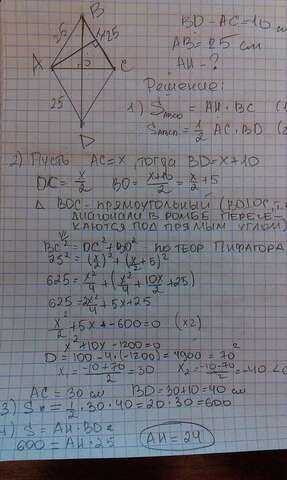 B
25
25
A
O
C
25
D
BD-AC=10 см
AB=25 см
AH-?
Решение:
1) S ABCD = AH·BC (1
S ABCD = 1/2 AC·BD (2
2) Пусть AC=x, тогда BD=x+10
OC = x/2 BO = (x+10)/2 = x/2 + 5
Δ BOC - прямоугольный (BO⊥OC, т.к.
диагонали в ромбе пересе-
каются под прямым углом)
BC² = OC² + BO² по теор Пифагора
25² = (x/2)² + (x/2 + 5)²
625 = x²/4 + (x²/4 + 10x/2 + 25)
625 = 2x²/4 + 5x + 25
x²/2 + 5x - 600 = 0 (x2)
x² + 10x - 1200 = 0
D = 100 - 4·(-1200) = 4900 = 70²
x₁ = (-10+70)/2 = 30 x₂ = (-10-70)/2 = -40 <0
AC = 30 см BD = 30+10 = 40 см
3) S = 1/2 · 30 · 40 = 20·30 = 600
4) S = AH·BC
600 = AH·25
AH = 24